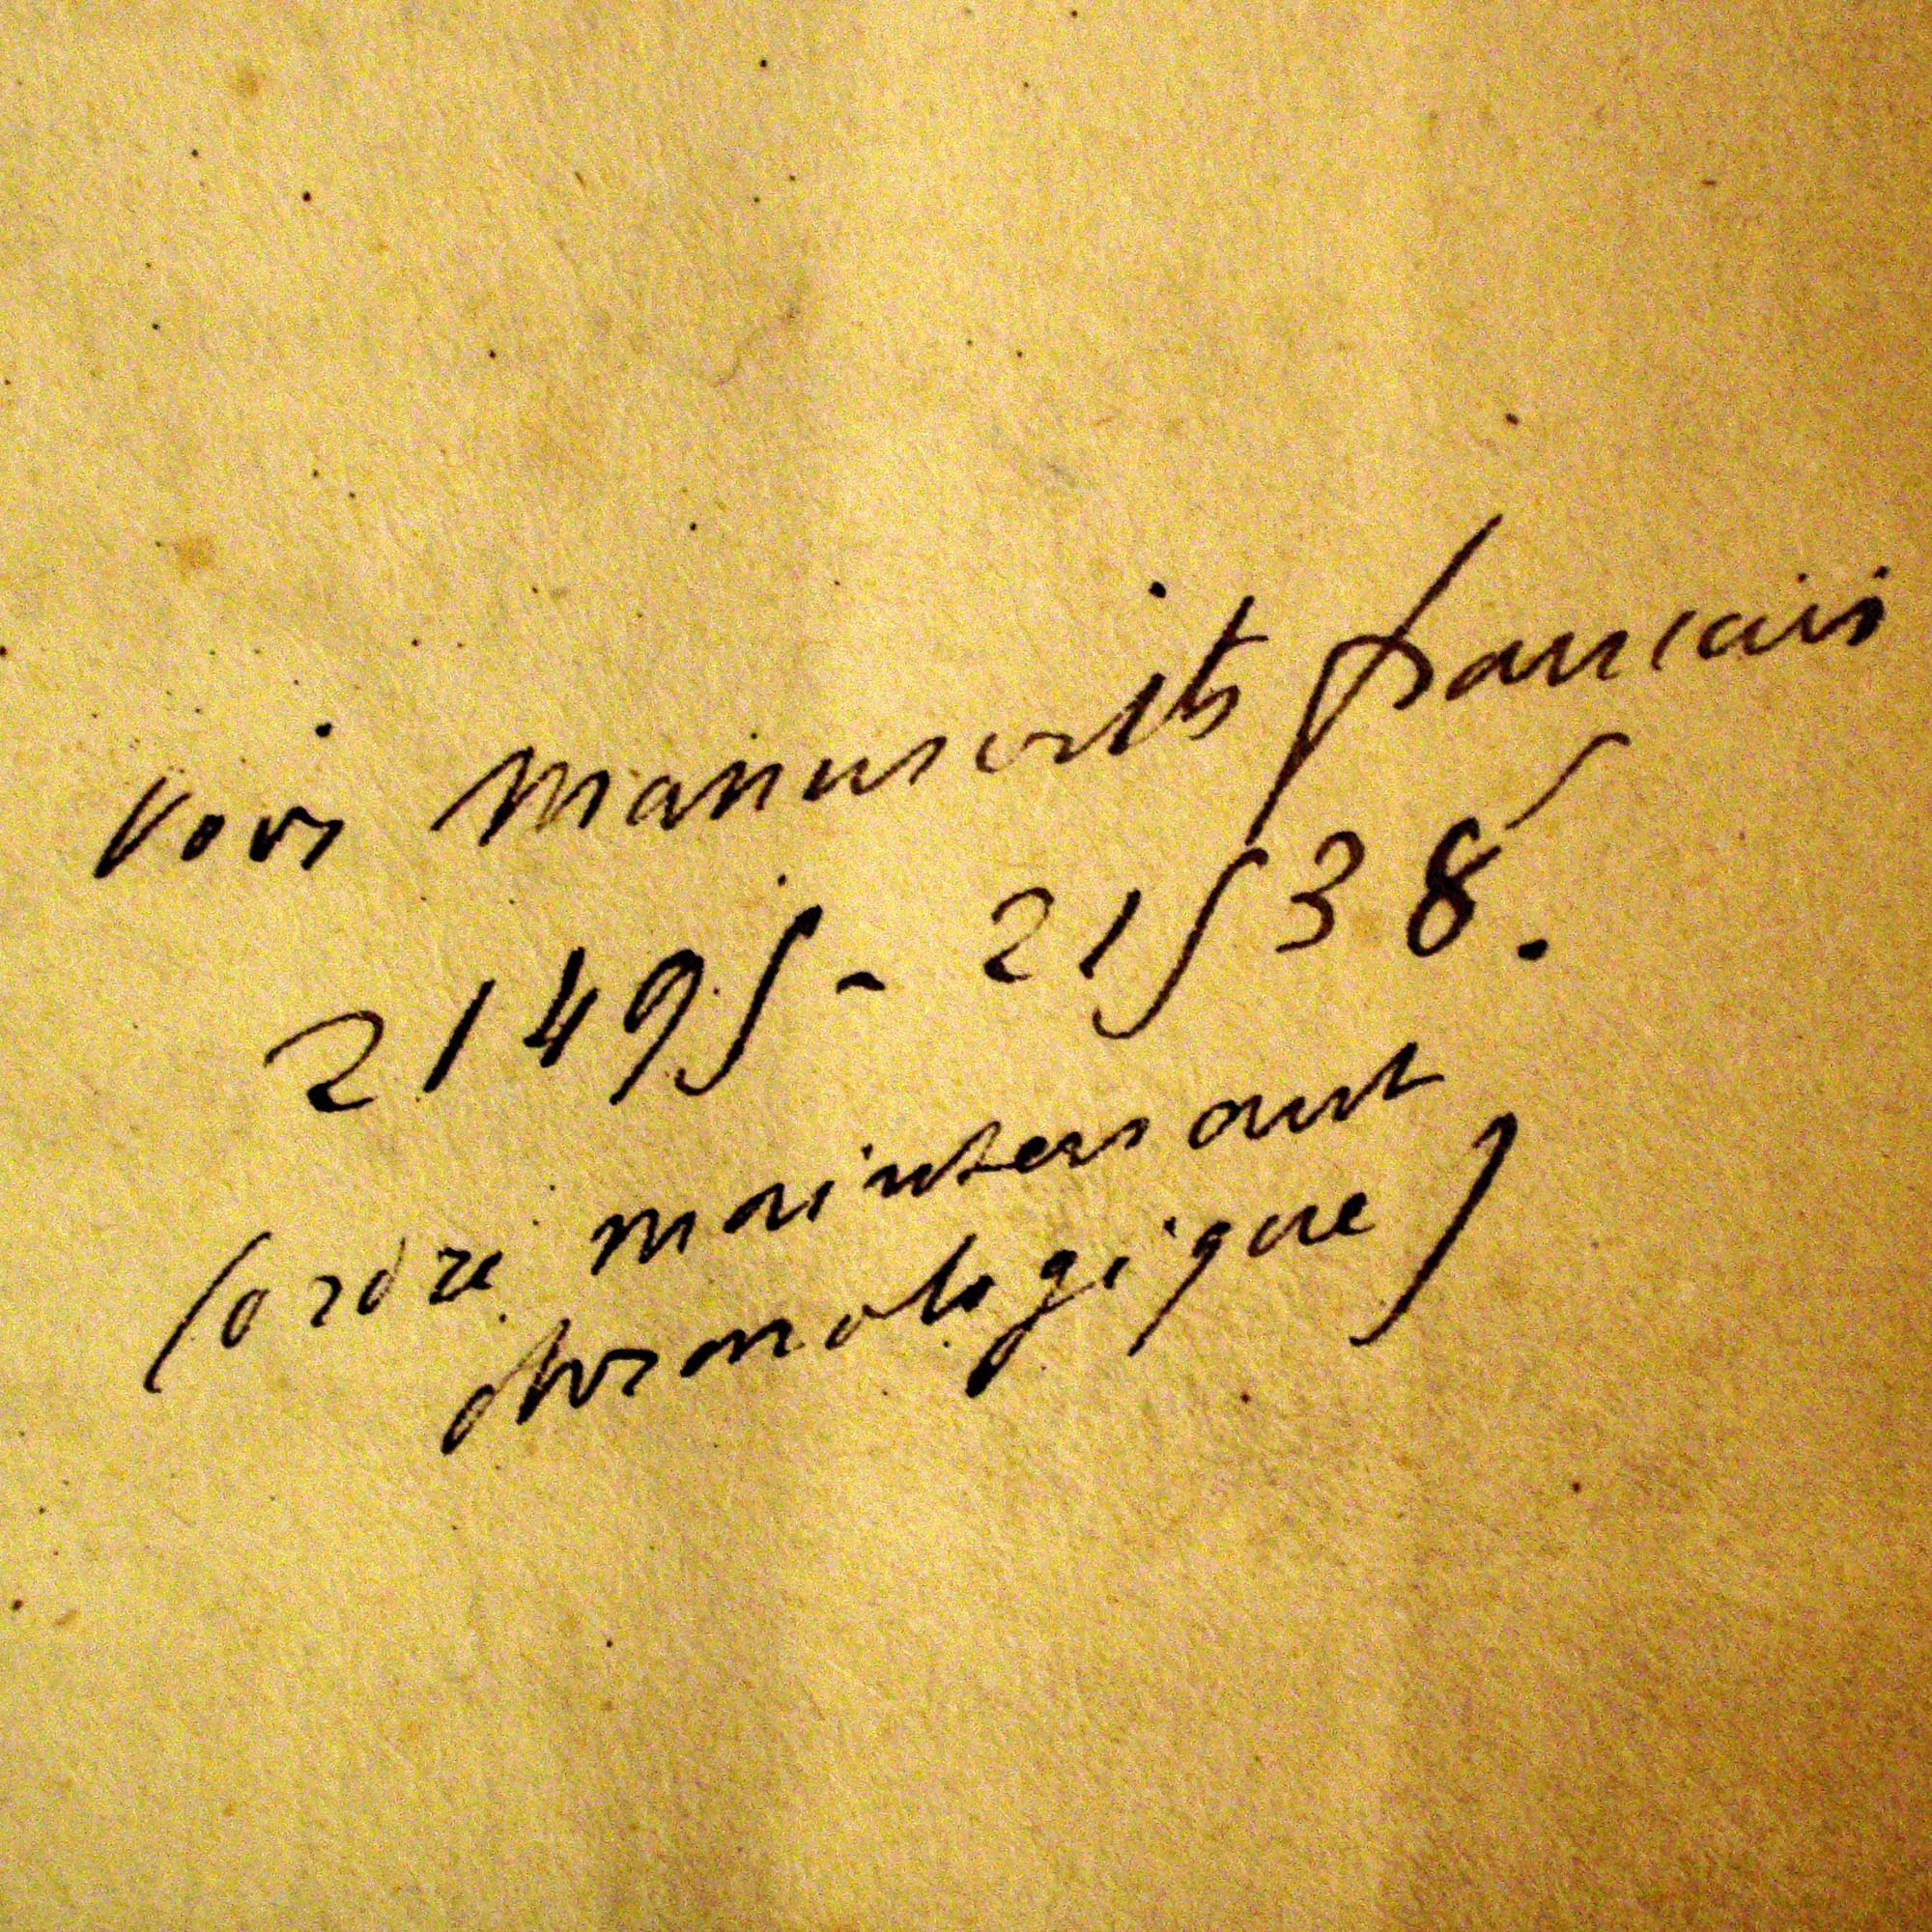 Voir manuscrits français
21495 - 21538.
(ordre maintenant
chronologique)